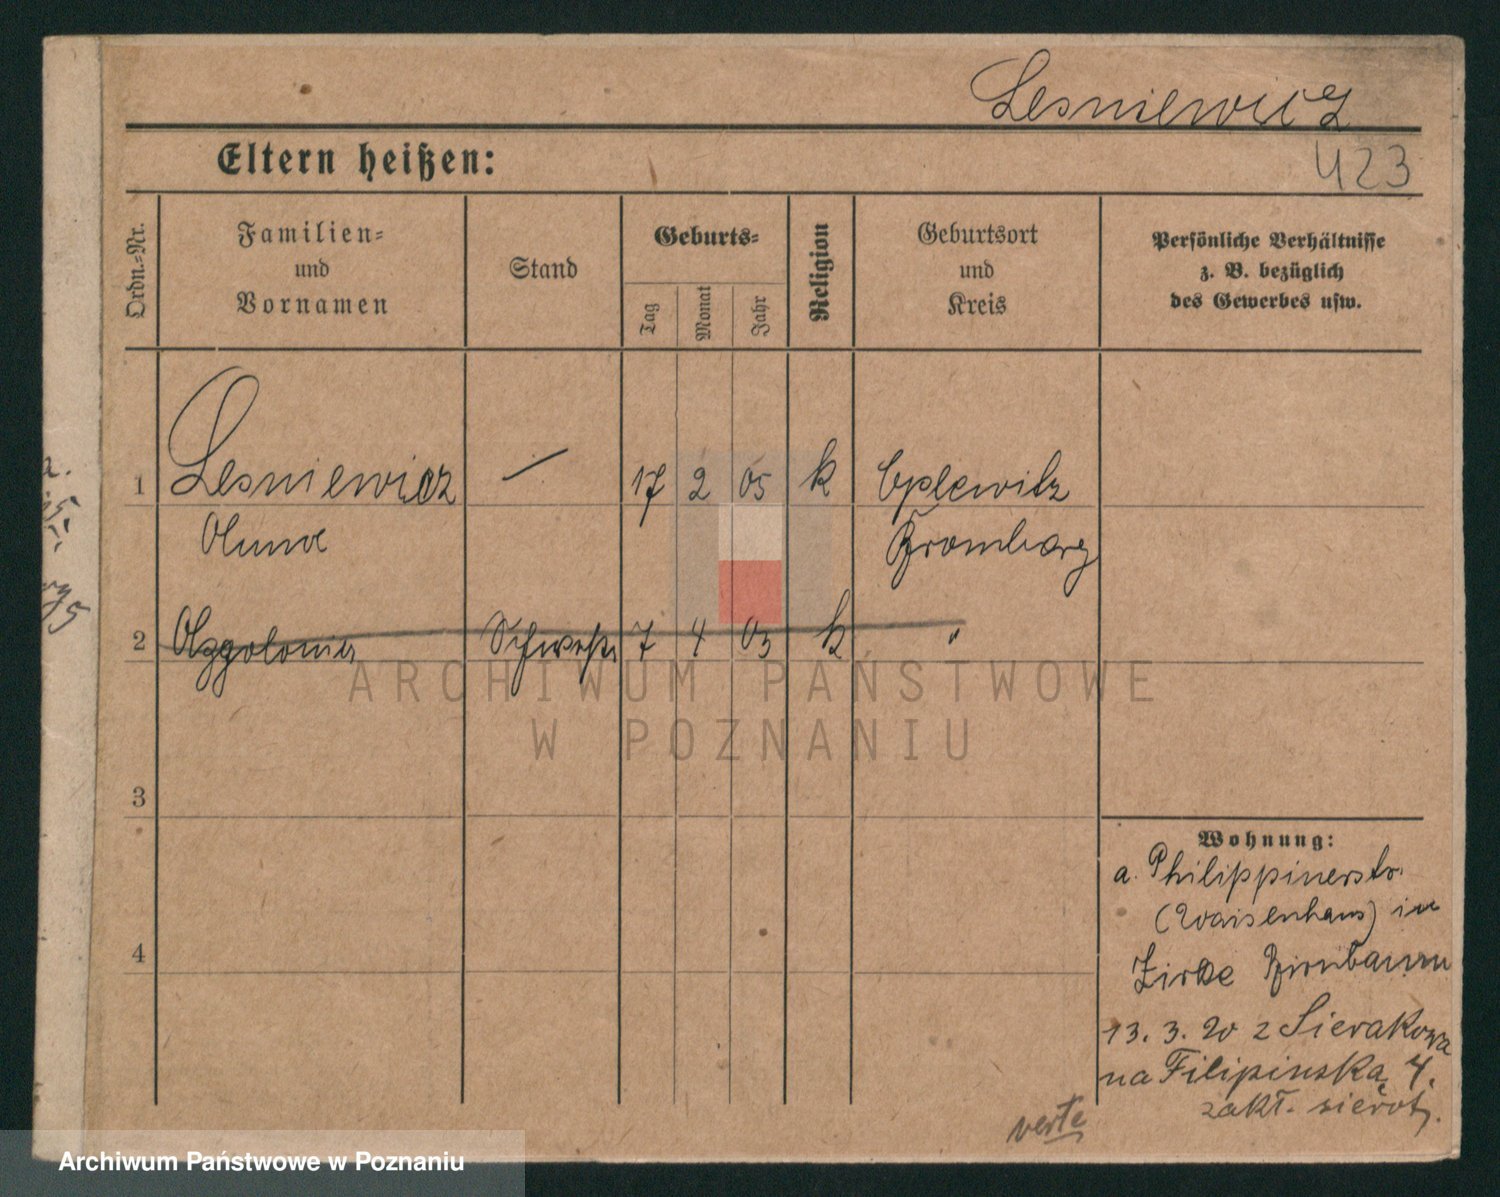 Lesniewicz
Eltern heißen:
423
Ordn.-Nr.
Familien-
und
Vornamen
Stand
Geburts-
Tag
Monat
Jahr
Religion
Geburtsort
und
Kreis
Persönliche Verhältnisse
z. B. bezüglich
des Gewerbes usw.
1 Lesniewicz — 17 2 05 k
Bromberg
2 Schwester 7 4 03 k "
3
4
Wohnung:
a. Philippinerstr.
(Waisenhaus) in
Zirke Birnbaum
13. 3. 20 z Sierakowa
na Filipińską 4.
zakł. sierot.
verte
ARCHIWUM PAŃSTWOWE
W POZNANIU
Archiwum Państwowe w Poznaniu